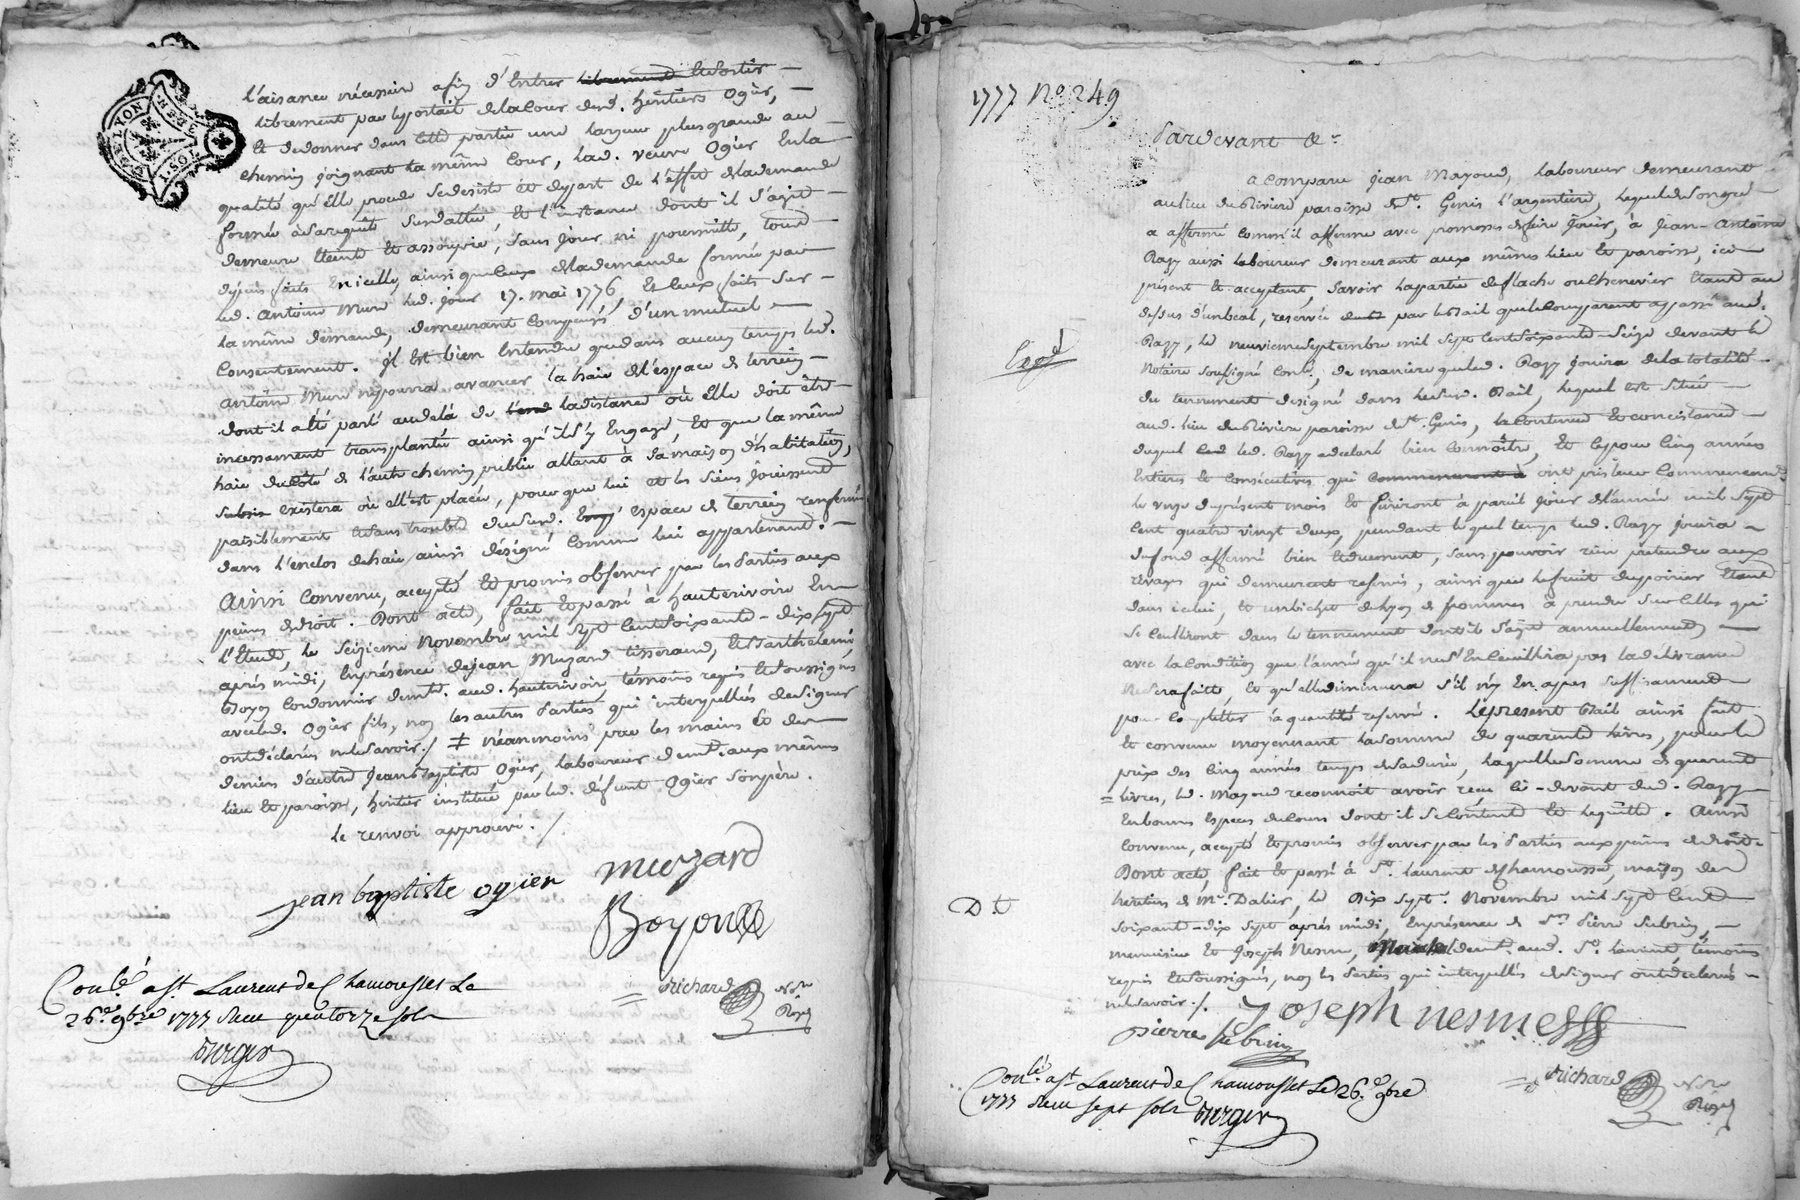 GEN. DE LYON
l'aisance nécessaire afin d'Entrer librement Et sortir
librement par le portail de la Cour desd. héritiers Ogier,
Et de donner dans cette partie une largeur plus grande au
chemin joignant la même Cour, lad. veuve Ogier En la
qualité qu'elle procede se desiste et depart de l'effet de la demande
formée à sa requête susdattée, Et l'instance dont il s'agit
demeure Eteinte Et assoupie, sans jour ni poursuitte, tous
depens faits En icelle, ainsi que Ceux de la demande formée par
led. Antoine Mure led. jour 17. mai 1776, Et Ceux faits sur
la même demande, demeurant Compensés, d'un mutuel
Consentement. Il Est bien Entendu que dans aucun temps led.
Antoine Mure ne pourra avancer la haie de l'espace de terrein
dont il a été parlé au delà de la distance où Elle doit être
incessament transplantée ainsi qu'il s'y Engage, Et que la même
haie du côté de l'autre chemin public allant à sa maison d'habitation,
subsis existera où ell'est placée, pour que lui et les siens jouissent
paisiblement Et sans trouble du susd. espace de terrein renfermé
dans l'enclos de haie, ainsi désigné Comme lui appartenant.
Ainsi Convenu, accepté Et promis observer par les Parties aux
peines de droit. Dont acte, fait Et passé à hauterivoire En
l'Etude, le seizieme Novembre mil sept Cent soixante-dix sept
après midi, En présence de jean Muzard tisserand, Et Barthelemi
Boyon Cordonnier demt. aud. hauterivoire, témoins requis Et soussignés
avec led. Ogier fils, non les autres Parties qui interpellées de signer
ont déclarés ne le savoir ./ ‡ néanmoins par les mains Et des
deniers d'autre Jean Baptiste Ogier, laboureur demt. aux mêmes
lieu Et paroisse, heritier institué par led. défunt Ogier son père.
le renvoi approuvé ./
jean baptiste ogier
Muzard
Boyon
Richard Nore
Royal
Conlé. a st. Laurent de Chamousset Le
26e. 9bre 1777 Recu quatorze sols
Berger
1777 No. 249
Pardevant &c.
a Comparu Jean Mayoud, laboureur demeurant
au lieu de Riviere paroisse de St. Genis l'argentiere, lequel de son gré
a affermé Comm'il afferme avec promesses de faire jouir, à Jean-Antoine
Razy aussi laboureur demeurant aux mêmes lieu Et paroisse, ici
présent Et acceptant, savoir la partie de flache ou Chenevier Etant au
dessus d'un beal, reservée par le Bail que le Comparant a passé aud.
Razy, le neuvieme septembre mil sept Cent soixante-seize devant le
Expd.
Notaire soussigné Conlé., de maniere que led. Razy jouira de la totalité
du tennement designé dans le susd. Bail, lequel est situé
aud. lieu de Riviere paroisse de St. Genis, la Contenue Et concistance
duquel led. Razy a declaré bien Connoître, Et Ce pour Cinq années
Entieres Et Consécutives qui Commenceront à ont pris leur Commencemt.
le onze du présent mois Et finiront à pareil jour de l'année mil sept
Cent quatre vingt deux, pendant lequel temps led. Razy jouira
du fond affermé bien Et duement, sans pouvoir rien prétendre aux
rivages qui demeurent reservés, ainsi que le fruit du poirier Etant
dans icelui, Et un bichet de pommes à prendre sur Celles qui
se Ceuilliront dans le tennement dont il s'agit annuellement
avec la Condition que l'année qu'il ne s'En Ceuillira pas la délivrance
ne sera faitte, et qu'elle diminuera s'il n'y En a pas suffisament
pour Completter la quantité reservée. Le present Bail ainsi fait
Et convenu moyennant la somme de quarante livres, pour le
prix des Cinq années temps de sa durée, laquelle somme de quarante
livres, led. Mayoud reconnoit avoir recu Ci-devant dud. Razy
En bonnes Especes de Cours dont il se Contente Et le quitte. Ainsi
Convenu, accepté Et promis observer par les Parties aux peines de droit.
Dont acte, fait Et passé à St. Laurent de Chamousset, maison des
héritiers de Me. Dalier, le Dix sept Novembre mil sept Cent
D t
soixante-dix sept après midi, En présence de Sr. Pierre Sebrin,
menuisier Et Joseph Nesme, demt. aud. St. Laurent, témoins
requis Et soussignés, non les Parties qui interpellées de signer ont declarés
ne le savoir ./.
Joseph nesme
pierre sebrin
Richard Nore
Royal
Conlé. a st. Laurent de Chamousset Le 26e. 9bre
1777 Recu sept sols Berger